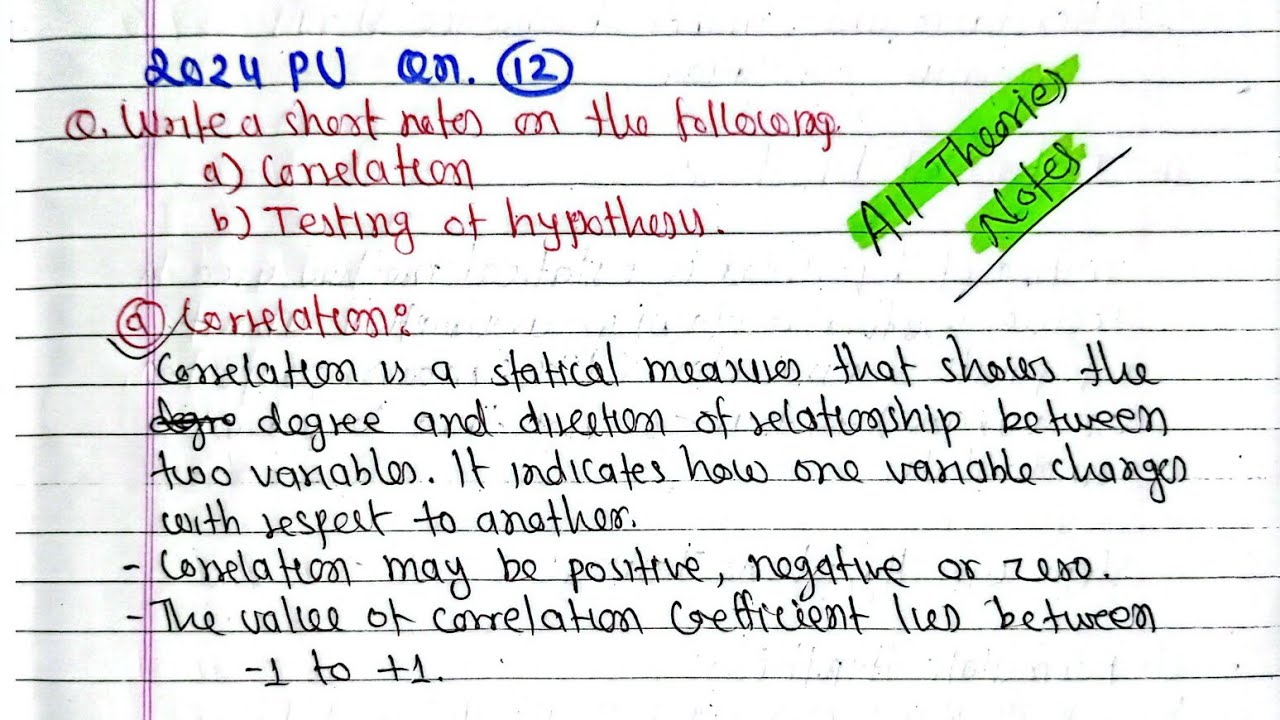 2024 PU Qn. (12)
Q. Write a short notes on the following.
a) Correlation
b) Testing of hypothesis.
All Theories
Notes
(a) Correlation:
Correlation is a statical measures that shows the
degre degree and direction of relationship between
two variables. It indicates how one variable changes
with respect to another.
- Correlation may be positive, negative or zero.
- The value of correlation Coefficient lies between
-1 to +1.